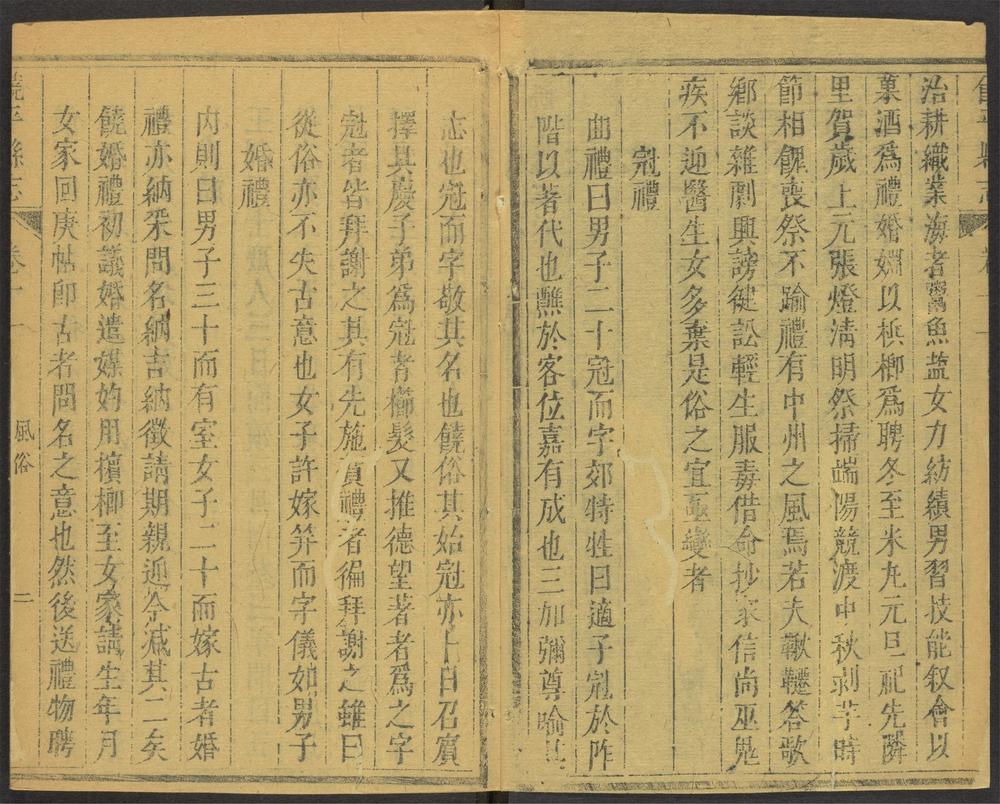 治耕織業海者鬻魚盐女力紡績男習技能叙會以
菓酒爲禮婚姻以梹榔爲聘冬至米丸元旦祀先隣
里賀歲上元張燈淸明祭掃端陽競渡中秋剥芋時
節相餽喪祭不踰禮有中州之風焉若夫鞦韆答歌
鄕談雜劇興謗徤訟輕生服毒借命抄家信尚巫鬼
疾不迎醫生女多棄是俗之宜亟變者
冠禮
曲禮曰男子二十冠而字郊特牲曰適子冠於阼
階以著代也醮於客位嘉有成也三加彌尊喻其
志也冠而字敬其名也饒俗其始冠亦卜日召賓
擇其慶子弟爲冠者櫛髮又推德望著者爲之字
冠者皆拜謝之其有先施貟禮者徧拜謝之雖曰
從俗亦不失古意也女子許嫁笄而字儀如男子
婚禮
內則曰男子三十而有室女子二十而嫁古者婚
禮亦納采問名納吉納徵請期親迎今减其二矣
饒婚禮初議婚遣媒妁用檳榔至女家請生年月
女家回庚帖卽古者問名之意也然後送禮物聘
饒平縣志
卷十一
風俗
二